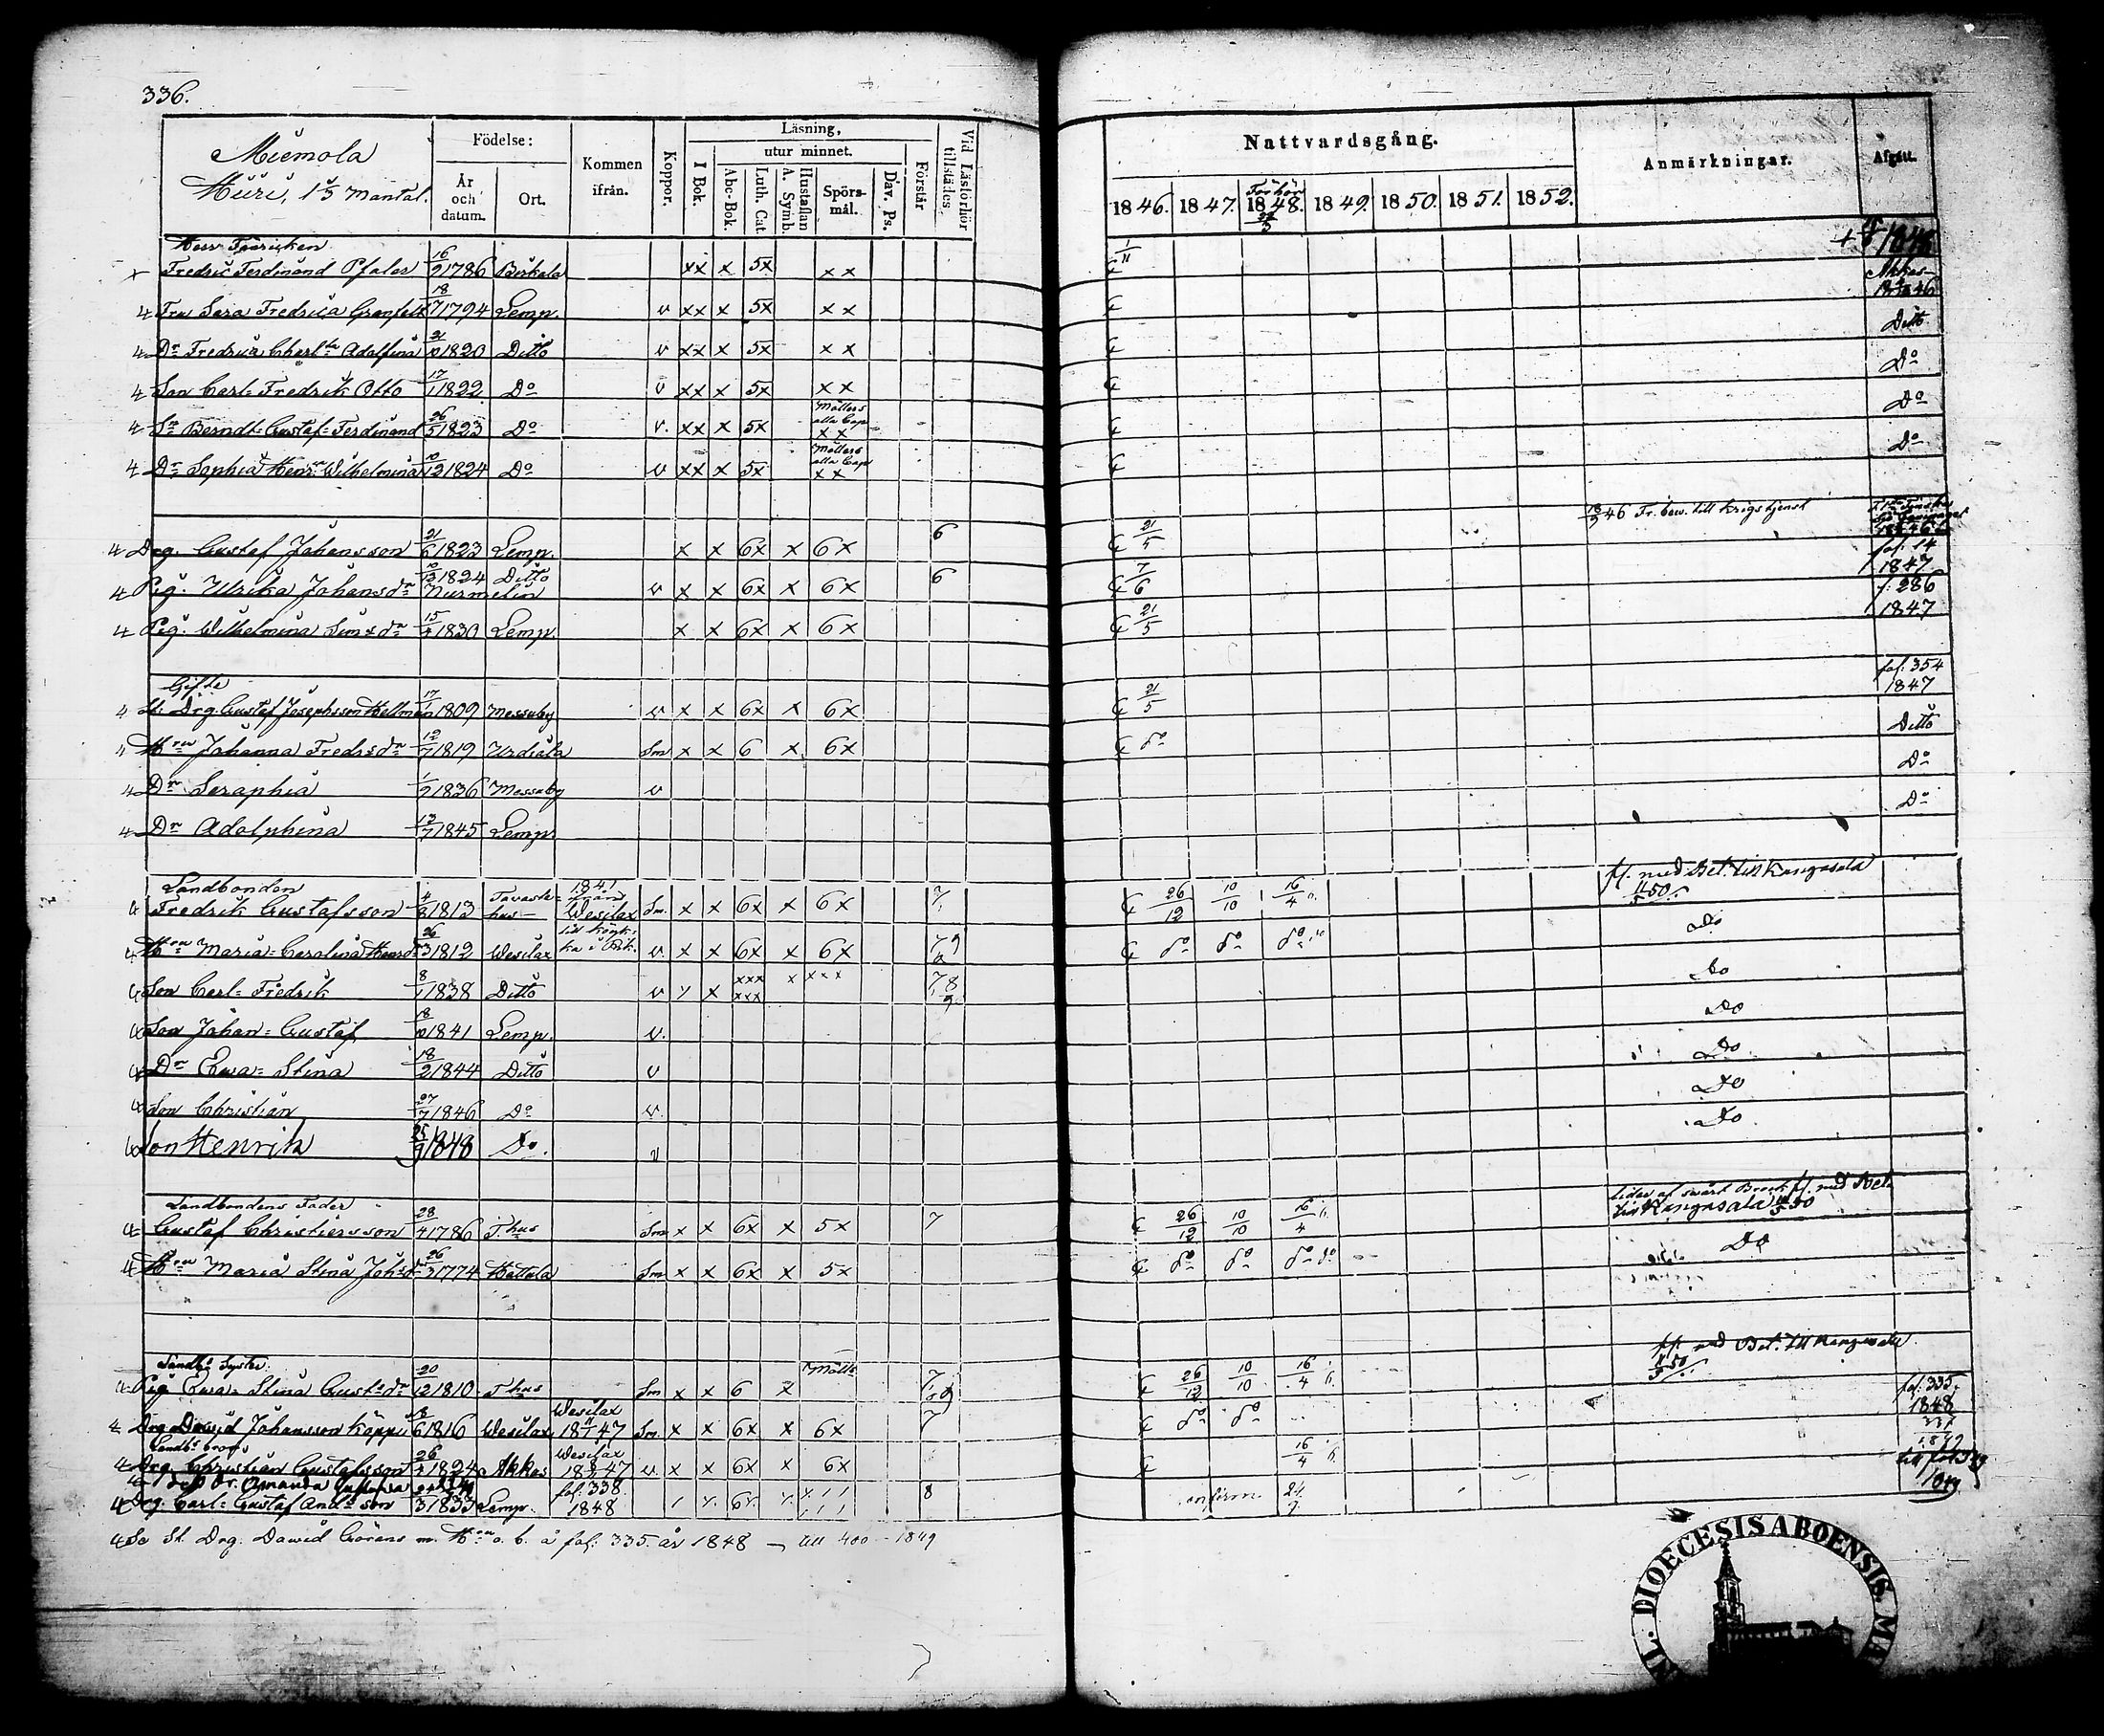 336.
Miemola
Muri, 1 1/3 Mantal.
Födelse:
År och datum.
Ort.
Kommen ifrån.
Koppor.
Läsning,
utur minnet.
I Bok.
Abc-Bok.
Luth. Cat.
Hustaflan A. Symb.
Spörsmål.
Dav. Ps.
Förstår
Vid Läsförhör tillstädes
Nattvardsgång.
1846. 1847. 1848. 1849. 1850. 1851. 1852.
Anmärkningar.
Afgått.
Fredric Ferdinand Pfaler 16/9 1786 Birkala xx x 5x xx
Fru Sara Fredrica Granfelt 18/7 1794 Lemp. v xx x 5x xx Akkas 1846
Dr Fredrica Charl:tta Adolfina 21/10 1820 Ditto v xx x 5x xx Ditto
Son Carl-Fredrik Otto 17/1 1822 Do v xx x 5x xx Do
Sn Berndt-Gustaf-Ferdinand 26/5 1823 Do v. xx x 5x Möllers alla Cap xx Do
Dr Sophia Henr. Wilhelmina 10/12 1824 Do v xx x 5x Möllers alla Cap xx Do
Drg. Gustaf Johansson 21/6 1823 Lemp. x x 6x x 6x 6 21/5 46 Fr. bew. till Krigstjenst
Pig. Ulrika Johansdr Nurmelin 10/12 1824 Ditto v x x 6x x 6x 6 7/6 fol. 14 1847
Pig. Wilhelmina Simsdr 15/4 1830 Lemp. x x 6x x 6x 21/5 f. 286 1847
Gifte
St. Drg. Gustaf Josephsson Hellman 17/1 1809 Messuby v x x 6x x 6x 21/5 fol. 354 1847
Hru Johanna Fredrsdr 12/7 1819 Urdiala Sm x x 6 x 6x do Ditto
Dr Seraphia 1/9 1836 Messuby v Do
Dr Adolphina 13/7 1845 Lemp. Do
Landbonden
Fredrik Gustafsson 4/8 1813 Tavastehus 1841 från Wesilax Sm. x x 6x x 6x 7 26/12 10/10 16/4 fl. med Bet. till Kangasala 50
Hru Maria-Carolina Henrsdr 26/3 1812 Wesilax v x x 6x x 6x 7 do do do Do
Son Carl-Fredrik 8/1 1838 Ditto v x Do
Son Johan-Gustaf 18/10 1841 Lemp. v. Do
Dr Ewa-Stina 18/2 1844 Ditto v Do
Son Christian 27/7 1846 Do v. Do
Son Henrik 25/9 1848 Do. v Do
Landbondens Fader
Gustaf Christiersson 28/4 1786 T:hus Sm x x 6x x 5x 7 26/12 10/10 16/4 lider af svårt Bråck fl. med Bet. till Kangasala 50
Hru Maria Stina Johsdr 26/3 1774 Hattula Sm x x 6x x 5x do do do Do
Landb. Syster.
Pig. Ewa-Stina Gustsdr 20/12 1810 T:hus Sm x x 6 x 7 26/12 10/10 16/4 fl. med Bet. till Kangasala 50
Drg. David Johansson Käppi 1816 Wesilax Wesilax 1847 Sm. x x 6x x 6x 7 do do fol: 335. 1848
Drg. Christian Gustafsson 26/4 1824 Akkas Wesilax 1847 v. x x 6x x 6x 16/4
Drg. Carl-Gustaf Andsson 1833 Lemp. fol. 338 1848 8
Se St. Drg. David Görans m. Hru o. b. å fol. 335. år 1848 — till 400 – 1849
DIOECESIS ABOENSIS